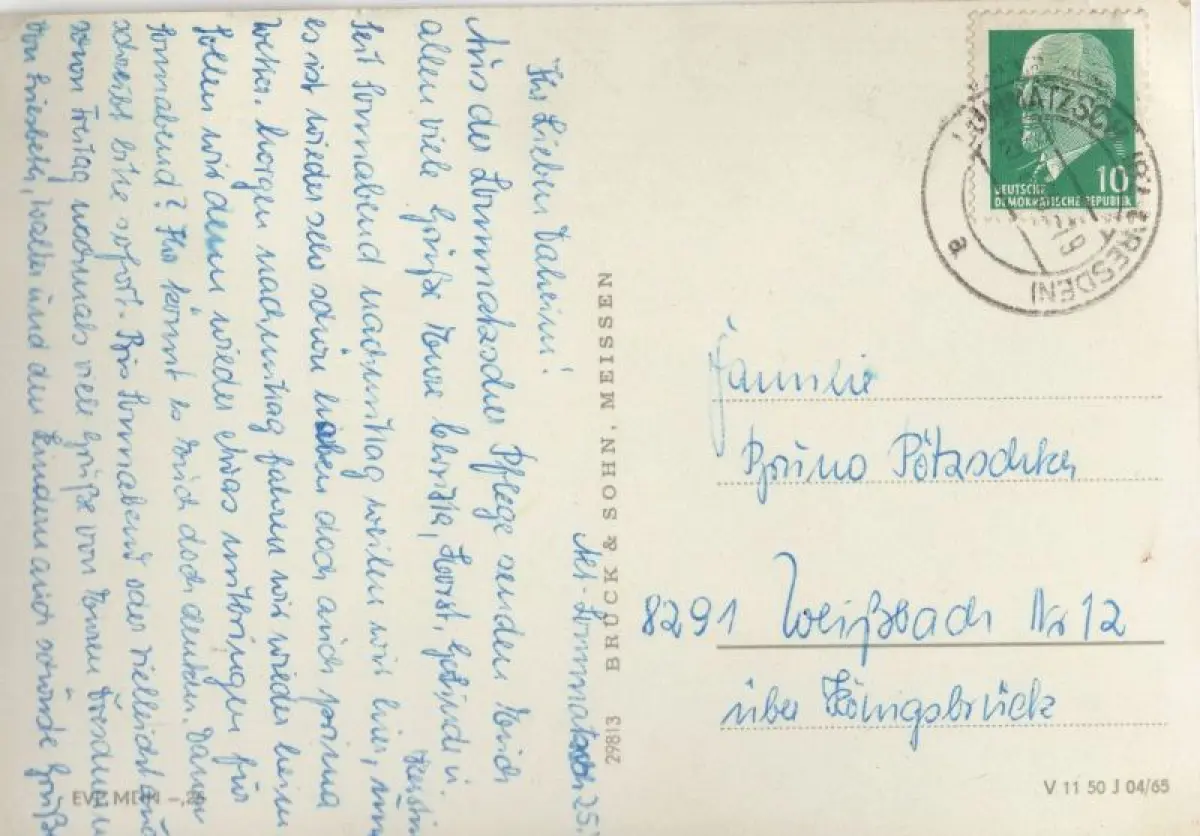 Alt-Lommatzsch 25.
Ihr Lieben Daheim!
Aus der Lommatzscher Pflege senden Euch
allen viele Grüße Eure Christa, Horst, Gotlinde u.
Kerstin
Seit Sonnabend nachmittag weilen wir hier, nun
es ist wieder sehr schön haben doch auch prima
Wetter. Morgen nachmittag fahren wir wieder heim
Sollen wir denn wieder etwas mitbringen für
Sonnabend? Ihr könnt es Euch doch denken. Dann
schreibt bitte sofort. Bis Sonnabend oder vielleicht auch
schon Freitag nochmals viele Grüße von Euren Dresdnern
von Liesbeth, Walter und den Kindern auch schöne Grüße
29813 BRÜCK & SOHN, MEISSEN
EVP MDN -,20
DEUTSCHE
DEMOKRATISCHE REPUBLIK
10
LOMMATZSCH (BZ DRESDEN)
a
Familie
Bruno Pötzschke
8291 Weißbach Nr 12
über Königsbrück
V 11 50 J 04/65